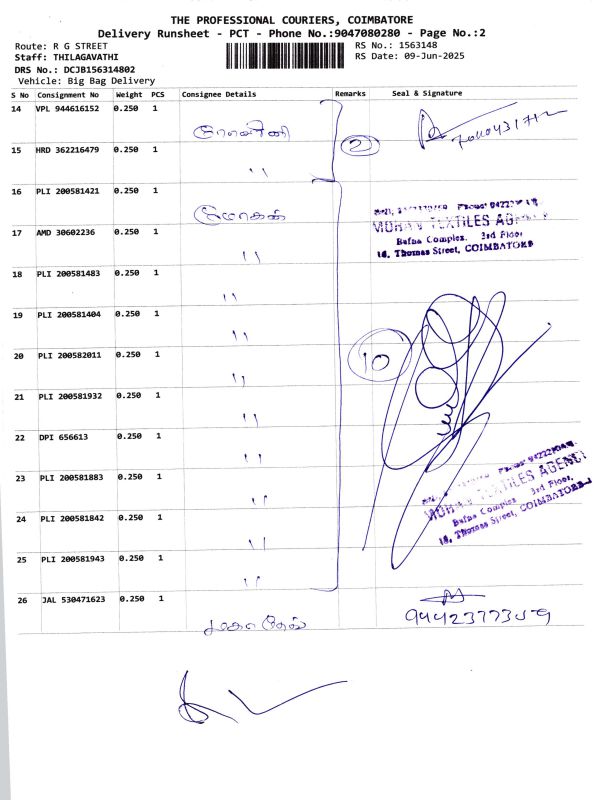 THE PROFESSIONAL COURIERS, COIMBATORE
Delivery Runsheet - PCT - Phone No.:9047080280 - Page No.:2
Route: R G STREET
RS No.: 1563148
Staff: THILAGAVATHI
RS Date: 09-Jun-2025
DRS No.: DCJB156314802
Vehicle: Big Bag Delivery
S No Consignment No Weight PCS Consignee Details Remarks Seal & Signature
14 VPL 944616152 0.250 1
2
15 HRD 362216479 0.250 1
"
16 PLI 200581421 0.250 1
MOHAN TEXTILES AGENCY
Bafna Complex, 3rd Floor
18, Thomas Street, COIMBATORE
17 AMD 30602236 0.250 1
"
18 PLI 200581483 0.250 1
"
19 PLI 200581404 0.250 1
"
10
20 PLI 200582011 0.250 1
"
21 PLI 200581932 0.250 1
"
22 DPI 656613 0.250 1
"
23 PLI 200581883 0.250 1
"
MOHAN TEXTILES AGENCY
Bafna Complex 3rd Floor,
18, Thomas Street, COIMBATORE
24 PLI 200581842 0.250 1
"
25 PLI 200581943 0.250 1
"
26 JAL 530471623 0.250 1
9442377359